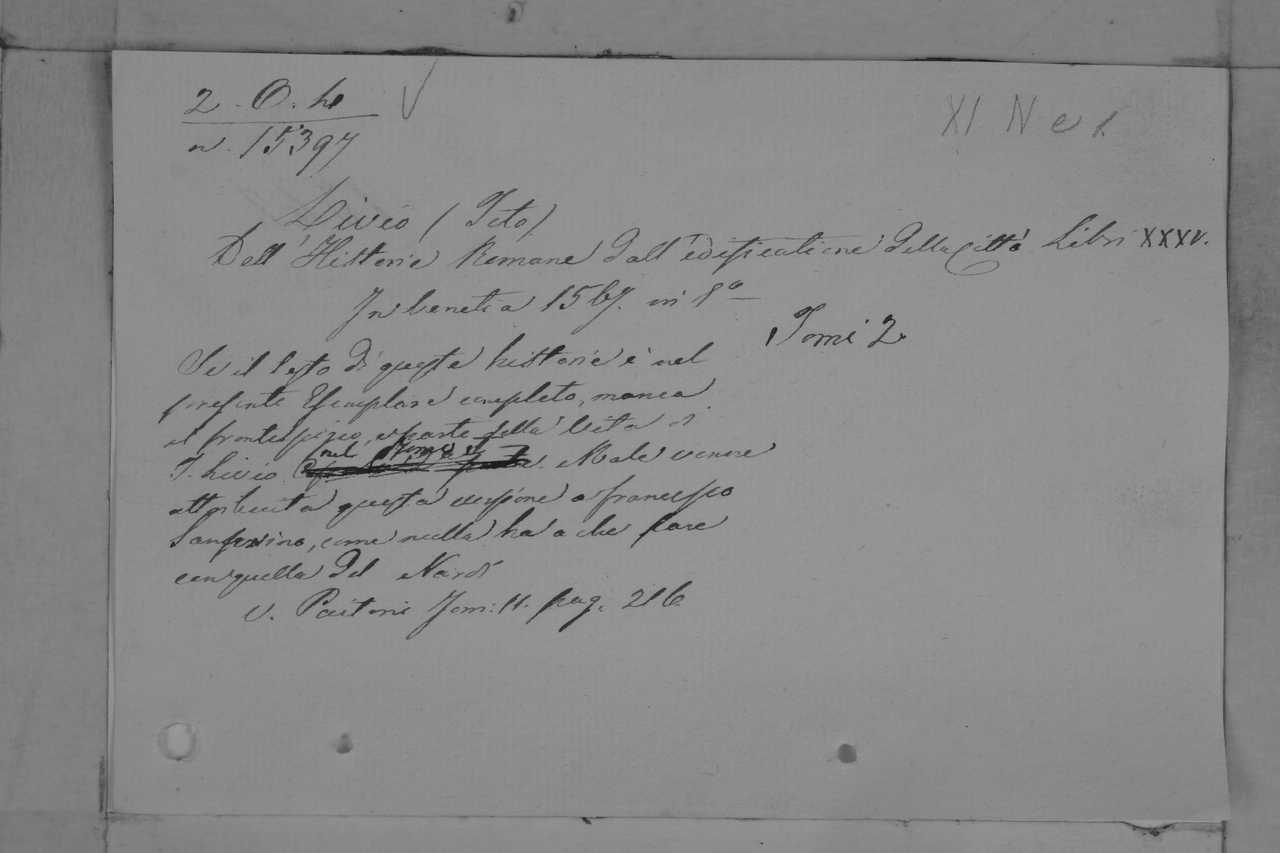 2. O. h
XI N e 1.
n. 15397
Livio (Tito)
Dell' Historie Romane dall' edificatione della Città Libri XXXV.
In Venetia 1567. in 8º
Tomi 2
Se il testo di queste historie è nel
presente Esemplare completo, manca
il frontespizio, e parte della Vita di
T. Livio nel Tomo I. Male venne
attribuita questa versione a Francesco
Sansovino, come nulla ha a che fare
con quella del Nardi
V. Paitoni Tom: II. pag. 216